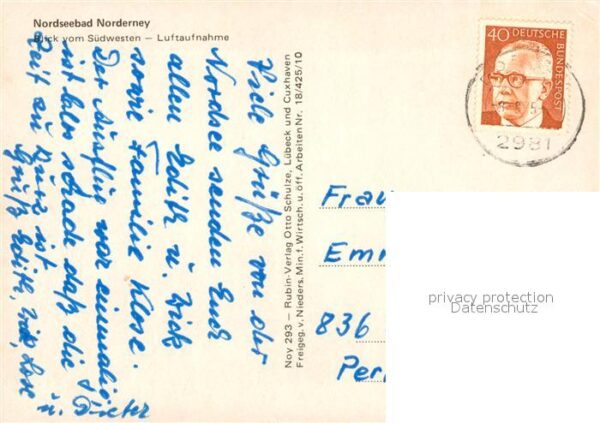 Nordseebad Norderney
Blick vom Südwesten — Luftaufnahme
Viele Grüße von der
Nordsee senden Euch
allen Edith u. Dick
sowie Familie Klose.
Der Ausflug war einmalig
ist bloß schade daß die
Zeit zu kurz ist
Gruß Edith, Dick, Lose
u. Dieter
Noy 293 — Rubin-Verlag Otto Schulze, Lübeck und Cuxhaven
Freigeg. v. Nieders. Min. f. Wirtsch. u. öff. Arbeiten Nr. 18/425/10
40 DEUTSCHE BUNDESPOST
2981
Frau
Em
836
Per
privacy protection
Datenschutz